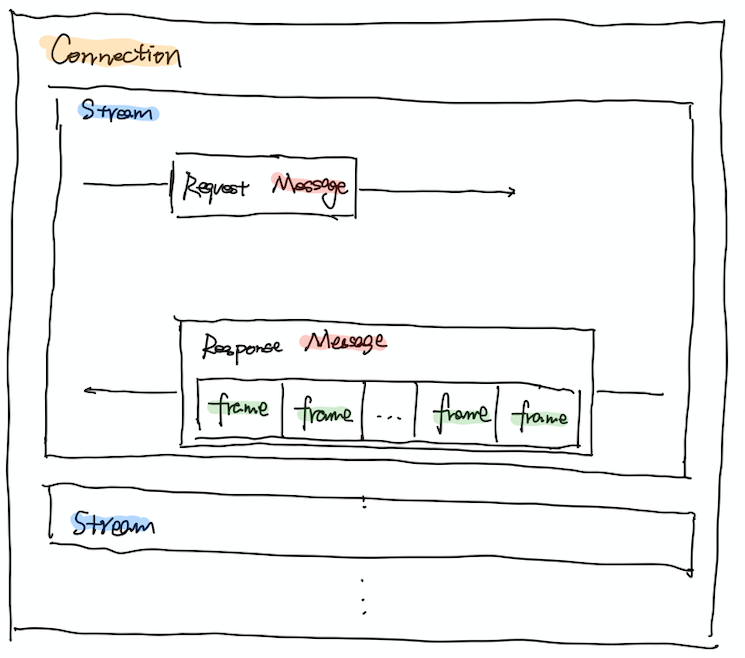 Connection
Stream
Request Message
Response Message
frame frame ... frame frame
Stream